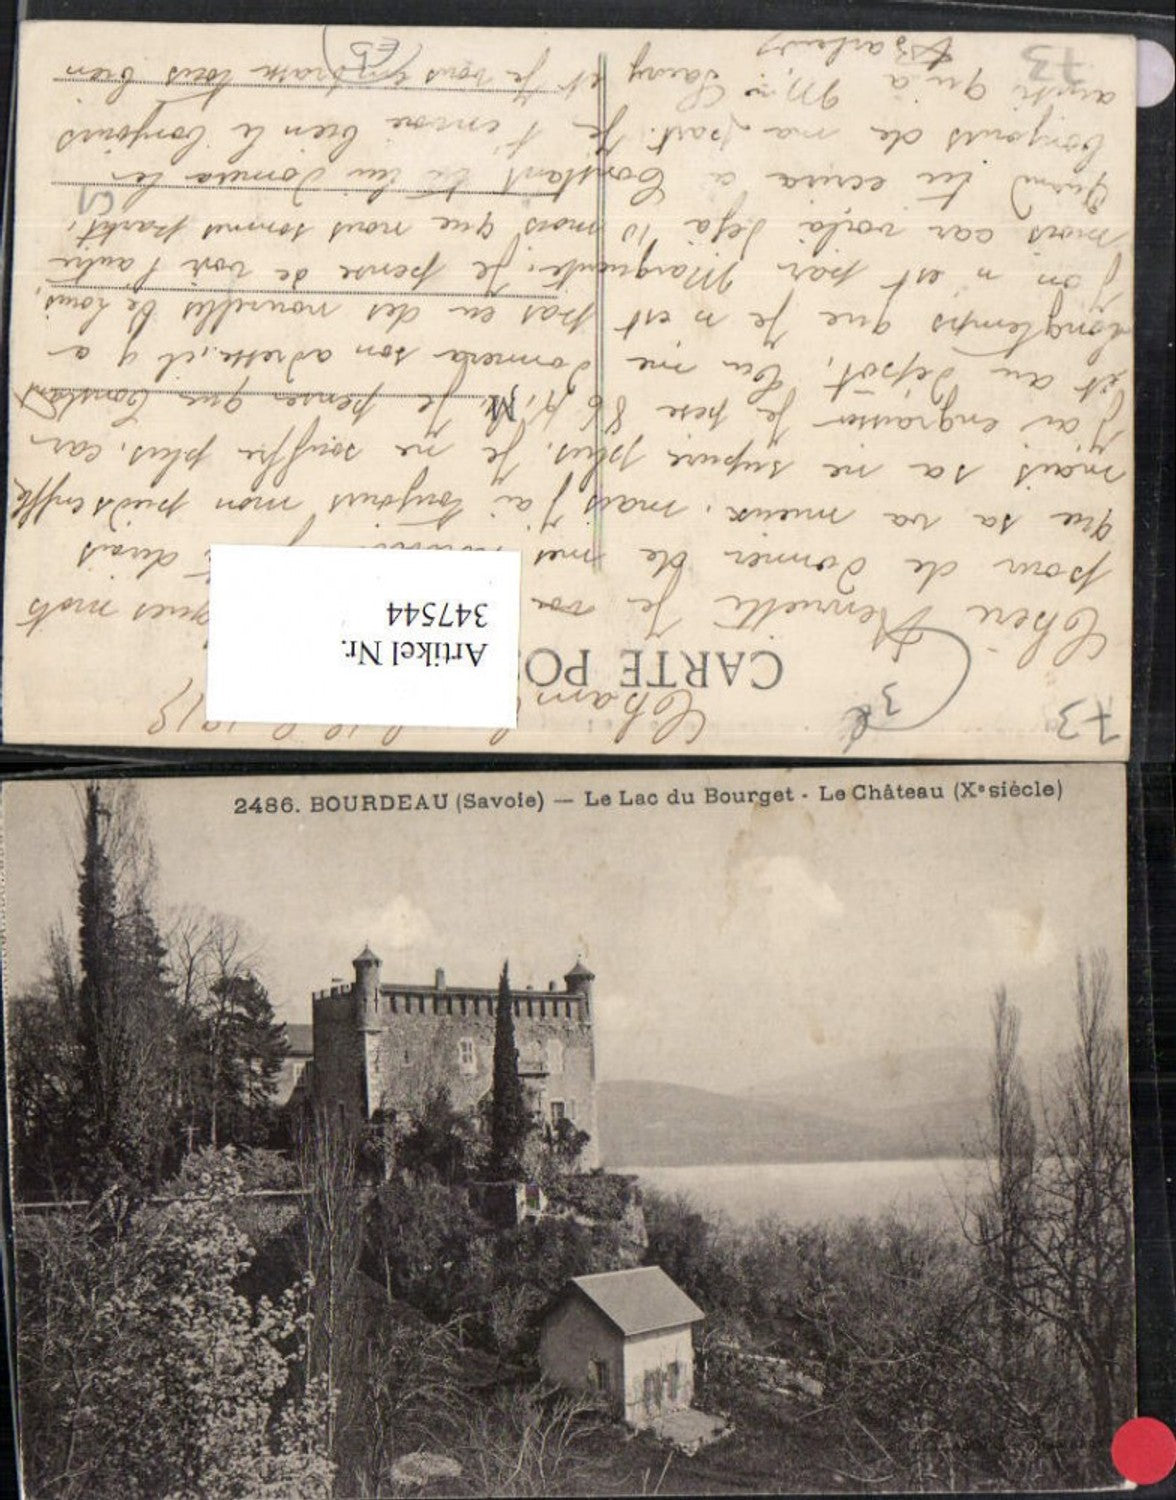 73
3
Cham 1918
CARTE PO
Artikel Nr.
347544
Cherie Henriette Je ques mots
pour de donner de mes t dirais
que sa va mieux. mais j'ai toujours mon pieds enflé
mais sa ne supure plus. Je ne souffre plus. car
j'ai engraisser Je pese 86 K. Je pense que Constant
est au depôt, tu me donnera son adresse, il y a
longtemps que Je n'est pas eu des nouvelles de Louis,
J'on n'est par Marguerite, Je pense de voir l'autre
mois car voila deja 10 mois que nous sommes partit,
Quand tu ecrira a Constant tu lui donnera les
bonjours de ma part. Je t'envoie bien le bonjours
ainsi qu'a Mr et Je vous embrasse tous bien
73
2486. BOURDEAU (Savoie) — Le Lac du Bourget - Le Château (Xe siècle)